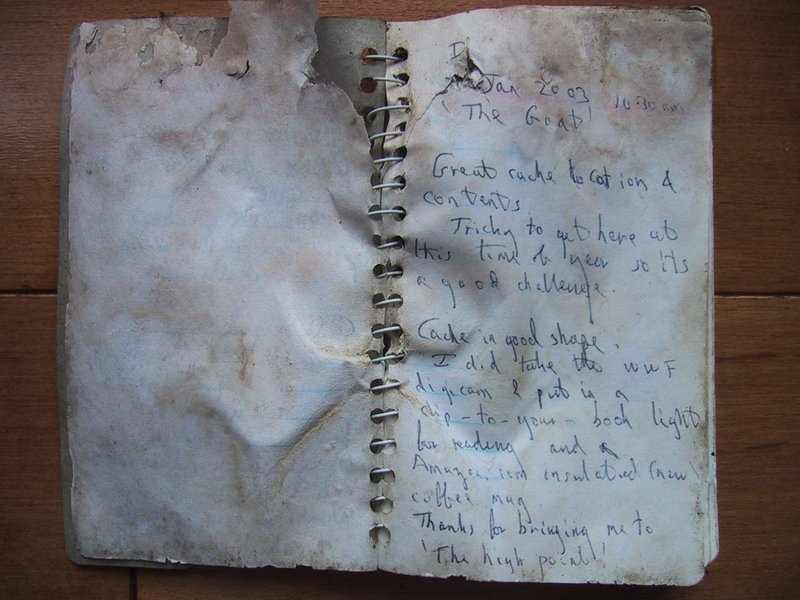 Jan 2003 10:30 am
'The Goat'
Great cache location &
contents
Tricky to get here at
this time of year so its
a good challenge.
Cache in good shape.
I did take the WWF
digicam & put in a
clip-to-your-book light
for reading and a
Amazon.com insulated (new)
coffee mug
Thanks for bringing me to
'The high point'!